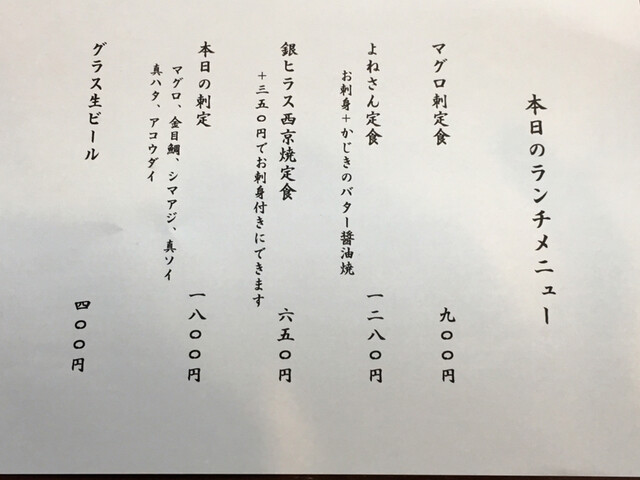 本日のランチメニュー
マグロ刺定食 九〇〇円
よねさん定食 一二八〇円
お刺身+かじきのバター醤油焼
銀ヒラス西京焼定食 六五〇円
+三五〇円でお刺身付きにできます
本日の刺定 一八〇〇円
マグロ、金目鯛、シマアジ、真ソイ
真ハタ、アコウダイ
グラス生ビール 四〇〇円